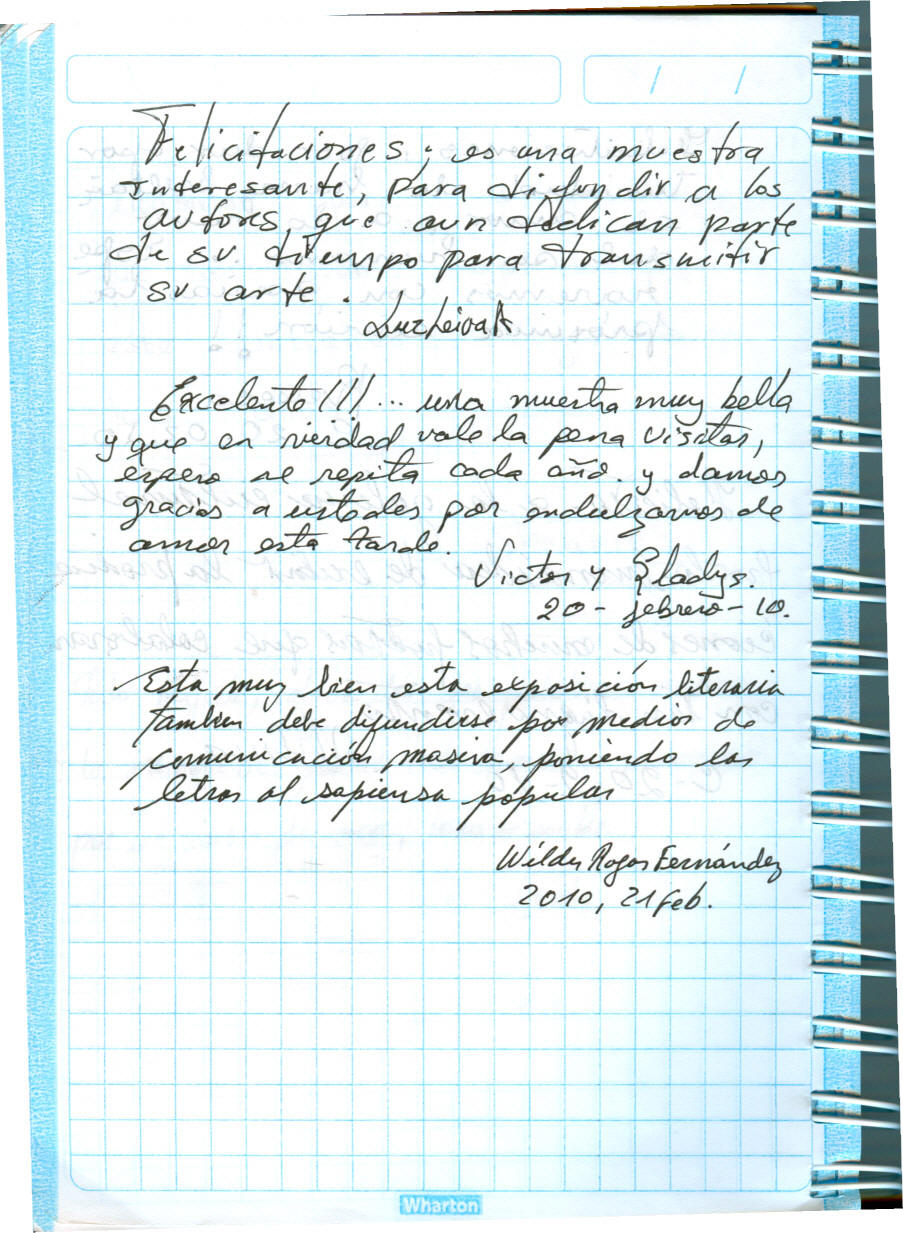 Felicitaciones; es una muestra
Interesante, para difundir a los
autores, que aun dedican parte
de su tiempo para transmitir
su arte.
Luz Leiva A
Excelente!!!... una muestra muy bella
y que en verdad vale la pena visitar,
espero se repita cada año. y damos
gracias a ustedes por endulzarnos de
amor esta tarde.
Victor y Gladys.
20 - febrero - 10.
Esta muy bien esta exposición literaria
tambien debe difundirse por medios de
comunicación masiva, poniendo las
letras al sapiensa popular
Wilder Rojas Fernández
2010, 21 feb.
Wharton